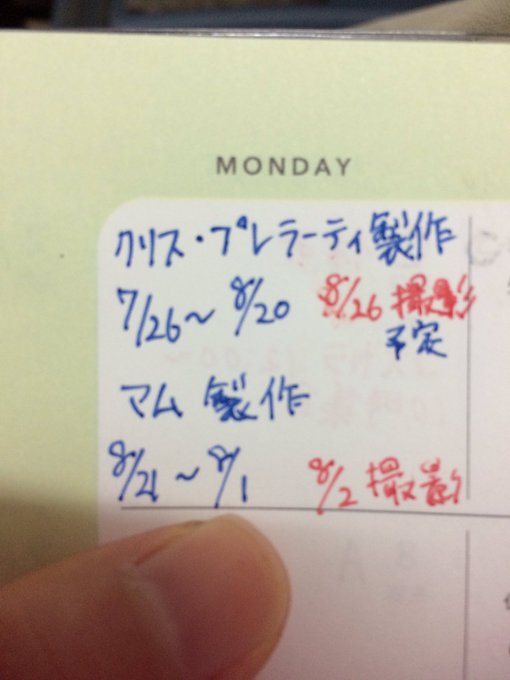 MONDAY
クリス・プレラーティ製作
7/26～8/20 8/26 撮影
予定
マム 製作
8/21～8/1 8/2 撮影